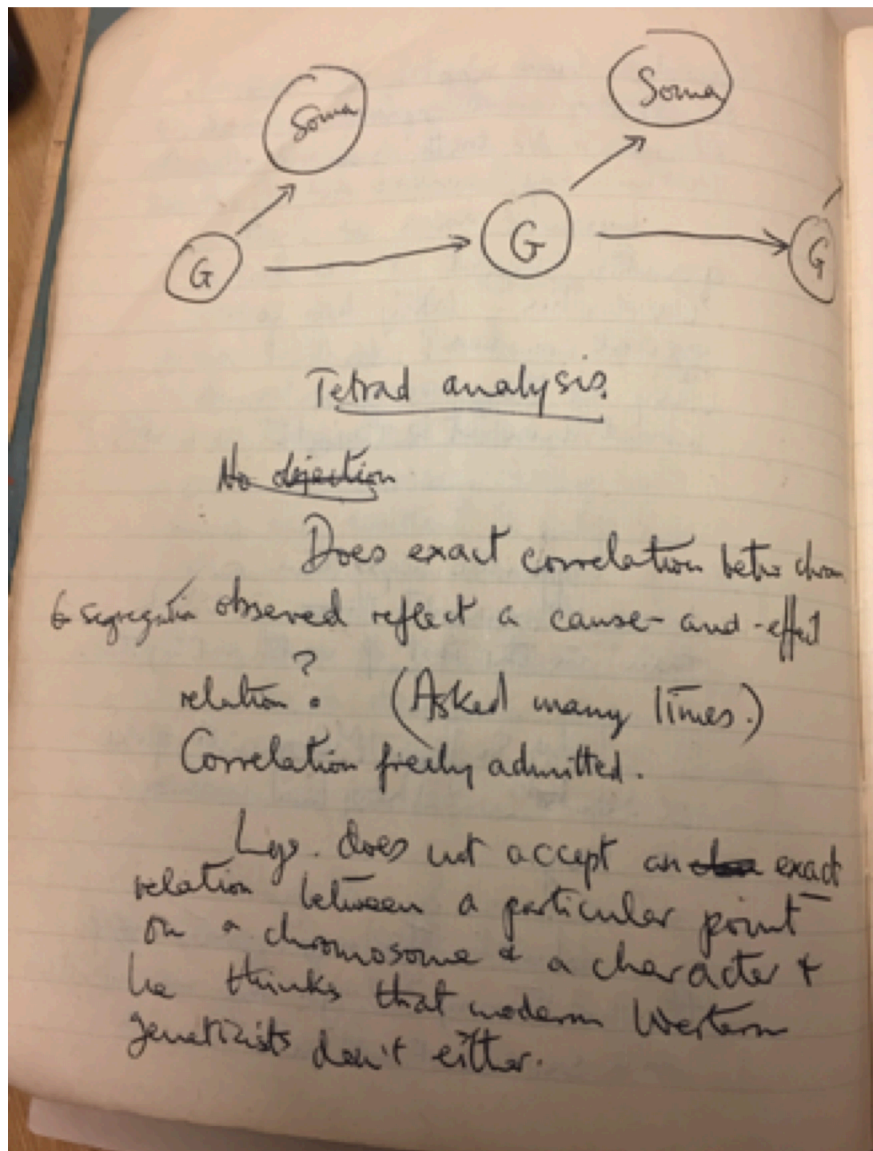 Soma
Soma
G
G
G
Tetrad analysis.
No objection
Does exact correlation betw chrom
& segregation observed reflect a cause-and-effect
relation? (Asked many times.)
Correlation freely admitted.
Lys. does not accept an exact
relation between a particular point
on a chromosome & a character &
he thinks that modern Western
geneticists don't either.